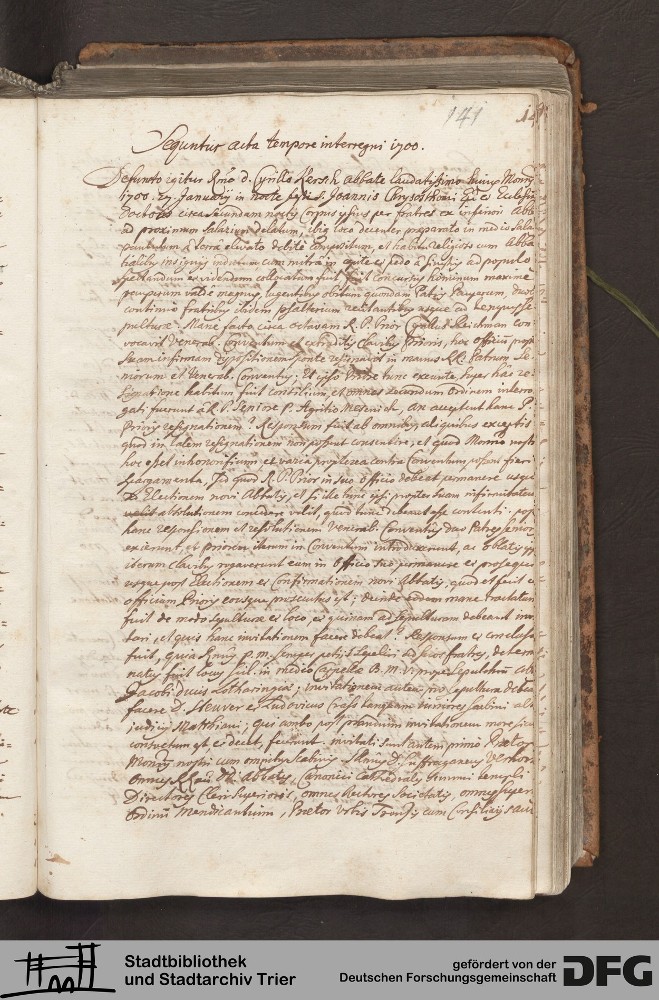 141
Sequntur acta tempore interregni 1700.
Defuncto igitur Rmo d. Cyrillo Kersch abbate laudatissimo huius Monrij
1700. 27 January in nocte festi S. Joannis Chrysostomi Epi et Ecclesiæ
Doctoris circa secundam noctis corpus ipsius per fratres ex inferiori Abba
ad proximum salarium delatum, ibiq loco decenter præparato in medio Sala
debite compositum, et habitu religioso cum Abba
tialibus insignijs indutum cum mitra in capite et pedo a populo
spectandum et videndum collocatum fuit, fuit concursus hominum maxime
pauperum valde magnus, lugentibus obitum quondam Patris Pauperum, duobus
continuo fratribus ibidem psalterium recitantibus usque ad tempus se
pulturæ. Mane facto circa octavam R. P. Prior Cyrillus Reichman con
vocavit Venerab. Conventum et extraditis clavibus Prioris, hoc officio propter
suam infirmam dispositionem sponte resignavit in manus RR. Patrum Se
niorum et Venerab. Conventus; Et ipso Priore tunc exeunte super hac re
signatione habitum fuit consilium, et omnes secundum ordinem interro
gati fuerunt à R. P. Seniore P. Agritio Mesenich, an acceptent hanc P.
Prioris resignationem? Responsum fuit ab omnibus, aliquibus exceptis
quod in talem resignationem non possent consentire, et quod Monrio nostro
hoc esset inhonorificum, et varia propterea contra Conventum possent fieri
spargamenta, sed quod R. P. Prior in suo officio debeat permanere usque
ad Electionem novi Abbatis, et si ille tunc ipsi propter suam infirmitatem
velit absolutionem concedere velit, quod tunc debeant esse contenti. post
hanc responsionem et resolutionem Venerab. Conventus duo Patres seniores
exierunt, et Priorem iterum in Conventum introduxerunt, ac oblatis ipsi
iterum clavibus rogaverunt eum in officio suo permanere et prosequi
usque post Electionem et Confirmationem novi Abbatis, quod et fecit et
officium Prioris eousque prosecutus est; deinde eodem mane tractatum
fuit de modo sepulturæ et loco, et quinam ad sepulturam debeant invi
tari, et quis hanc invitationem facere debeat? Responsum et conclusum
fuit, quia Rmus p. m. semper petijt sepeliri ad suos fratres, determi
natus fuit locus scil. in medio Cappellæ B. M. V. prope sepulchrum
Jacobi ducis Lotharingiæ; invitationem autem pro sepultura debeant
facere D. Heuver et Ludovicus Crass tanquam iuniores scabini alti
judicij Matthiani; qui ambo post prandium invitationem more sicut
consuetum est, et decet, fecerunt. invitati sunt autem primo Prætor
Monrij nostri cum omnibus scabinis. Rmus D. Suffraganeus Verhorst
omnes RRmi DD. abbates, Canonici Cathedralis summi templi
Directores Cleri superioris, omnes Rectores Societatis, omnes superi
ordinum Mendicantium, Prætor Urbis Trevirensis cum Consiliarijs
Stadtbibliothek
und Stadtarchiv Trier
gefördert von der
Deutschen Forschungsgemeinschaft
DFG